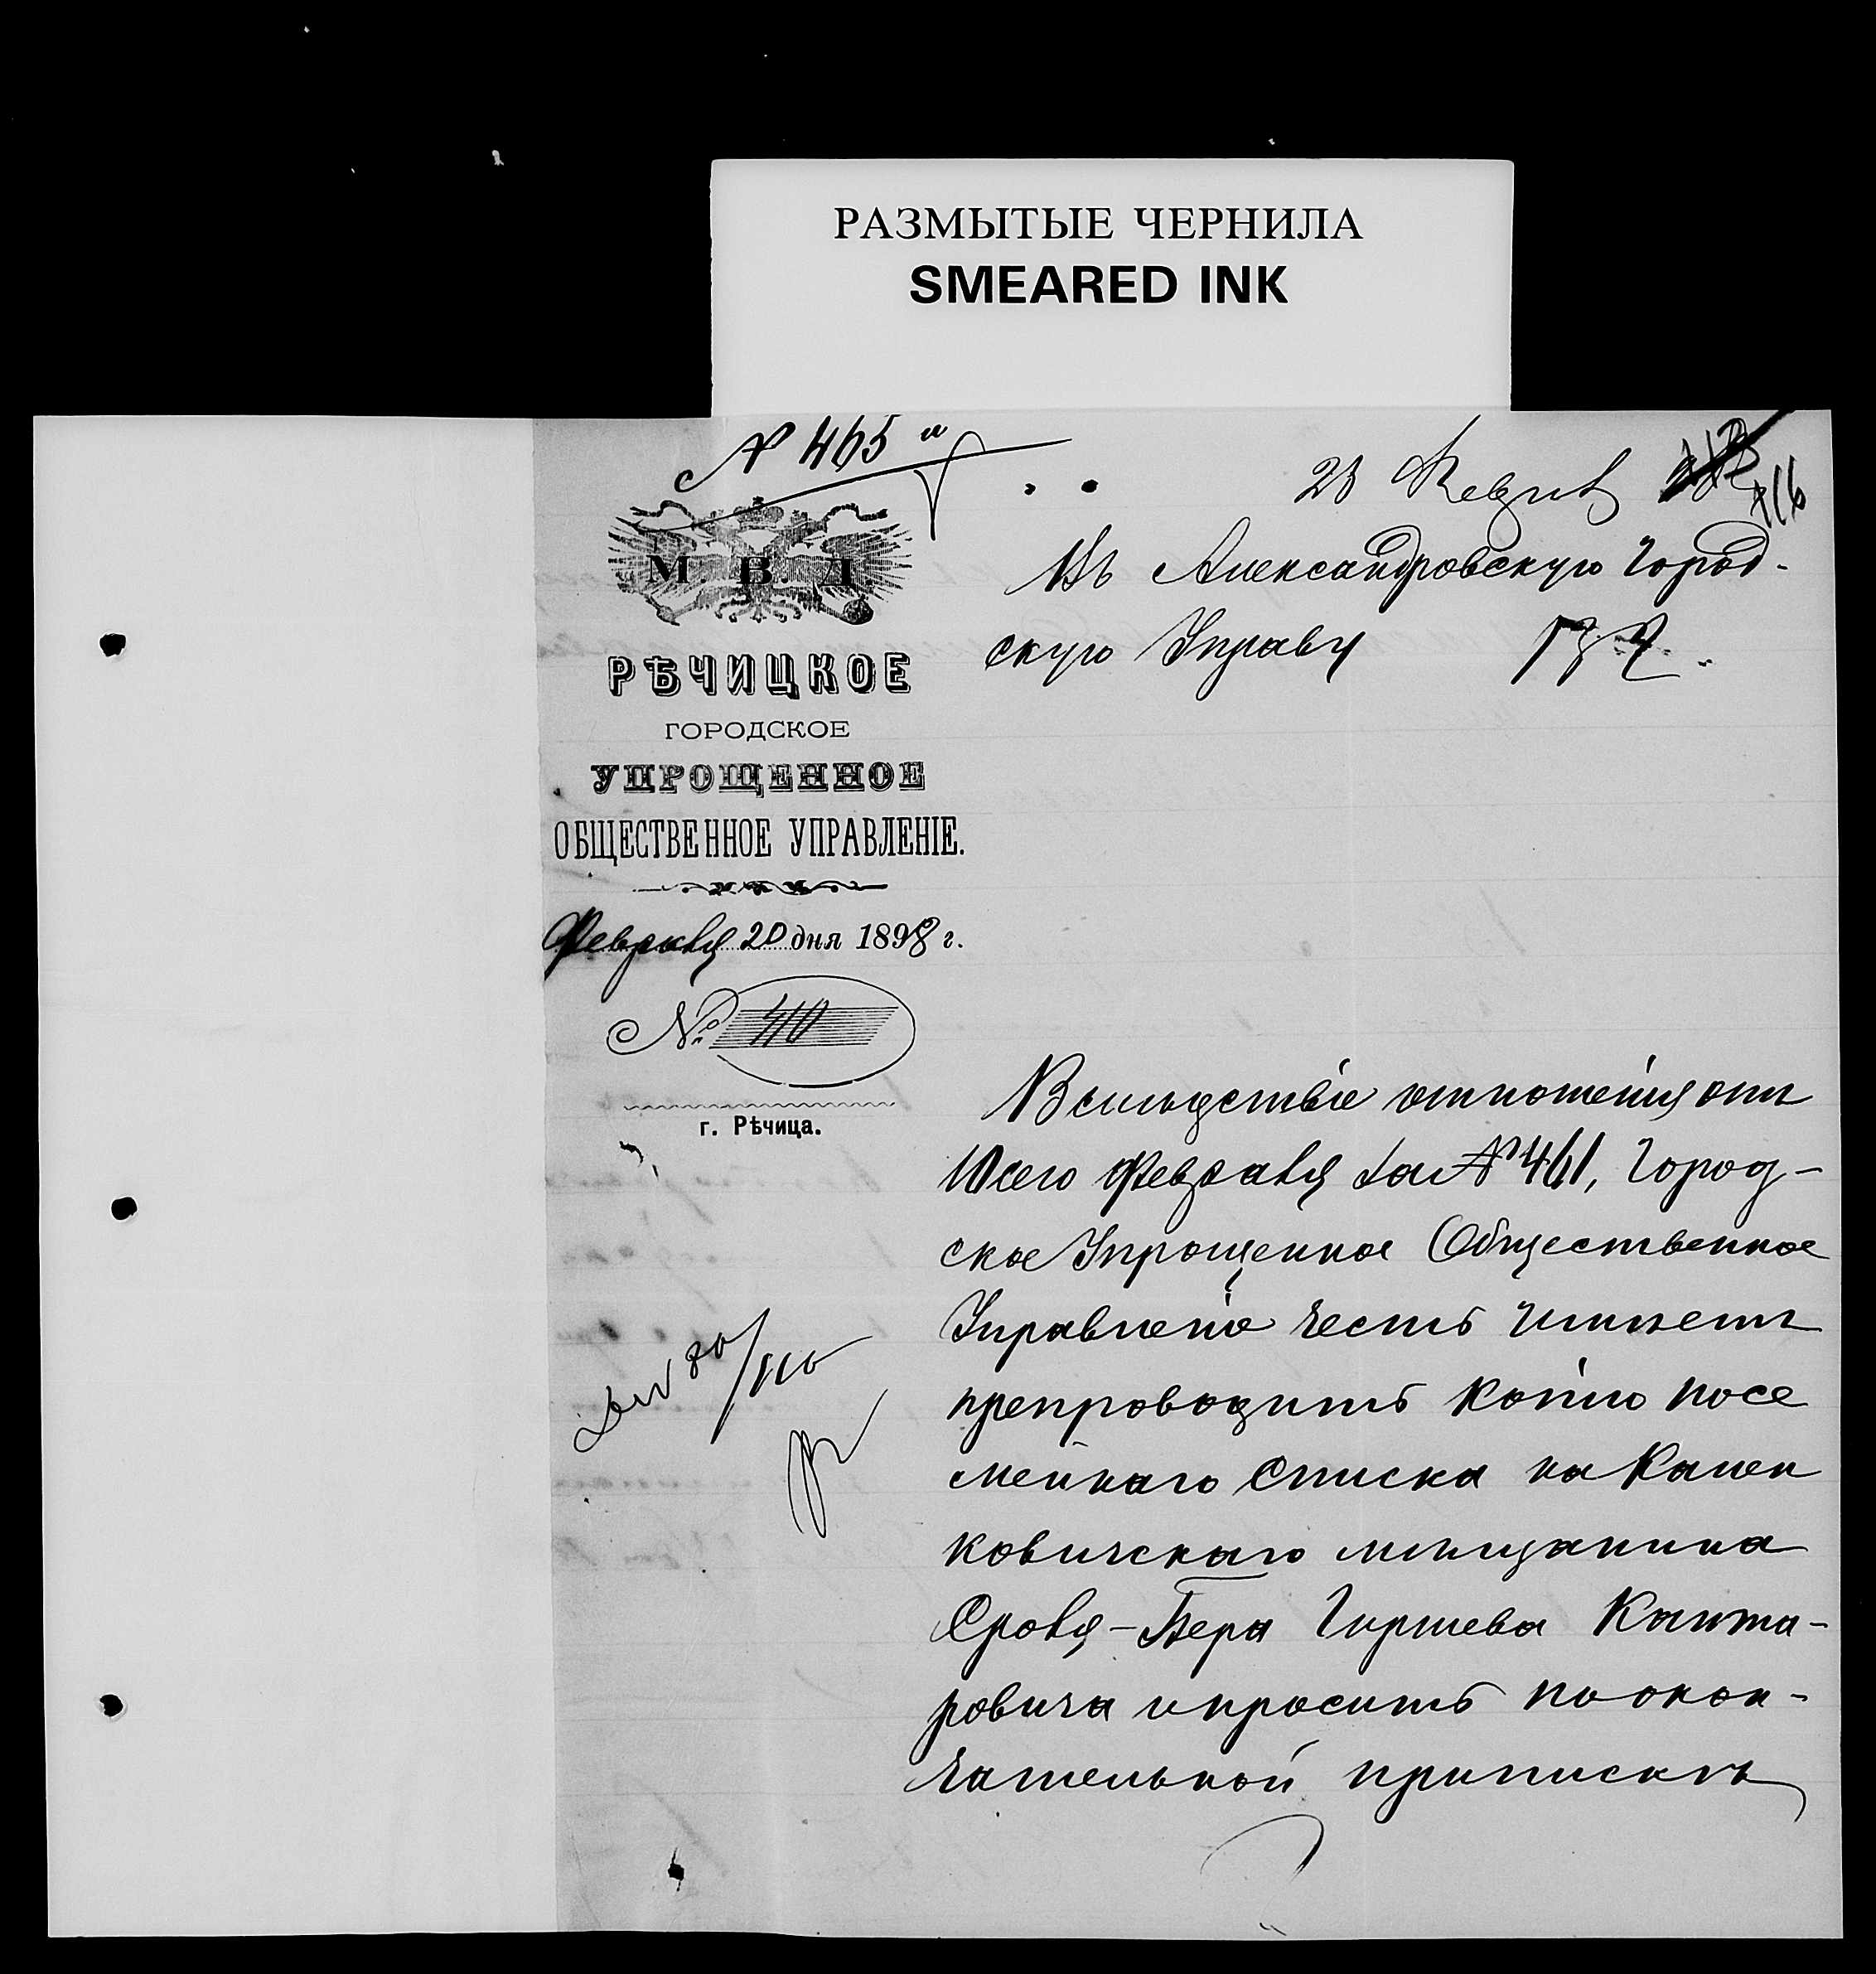 РАЗМЫТЫЕ ЧЕРНИЛА
SMEARED INK
№ 465
М. В. Д.
РѢЧИЦКОЕ
ГОРОДСКОЕ
УПРОЩЕННОЕ
ОБЩЕСТВЕННОЕ УПРАВЛЕНІЕ.
Февраля 20 дня 1898 г.
№ 410
г. Рѣчица.
23 Февр
116
Въ Александровскую Город-
скую Управу
Вслѣдствіе отношенія отъ
10 сего Февраля за № 461, Город-
ское Упрощенное Общественное
Управленіе честь имѣетъ
препроводить копію посе
мейнаго списка на Кален
ковичскаго мѣщанина
Сроля-Бера Гиршева Канто-
ровича и просить по окон-
чательной припискѣ